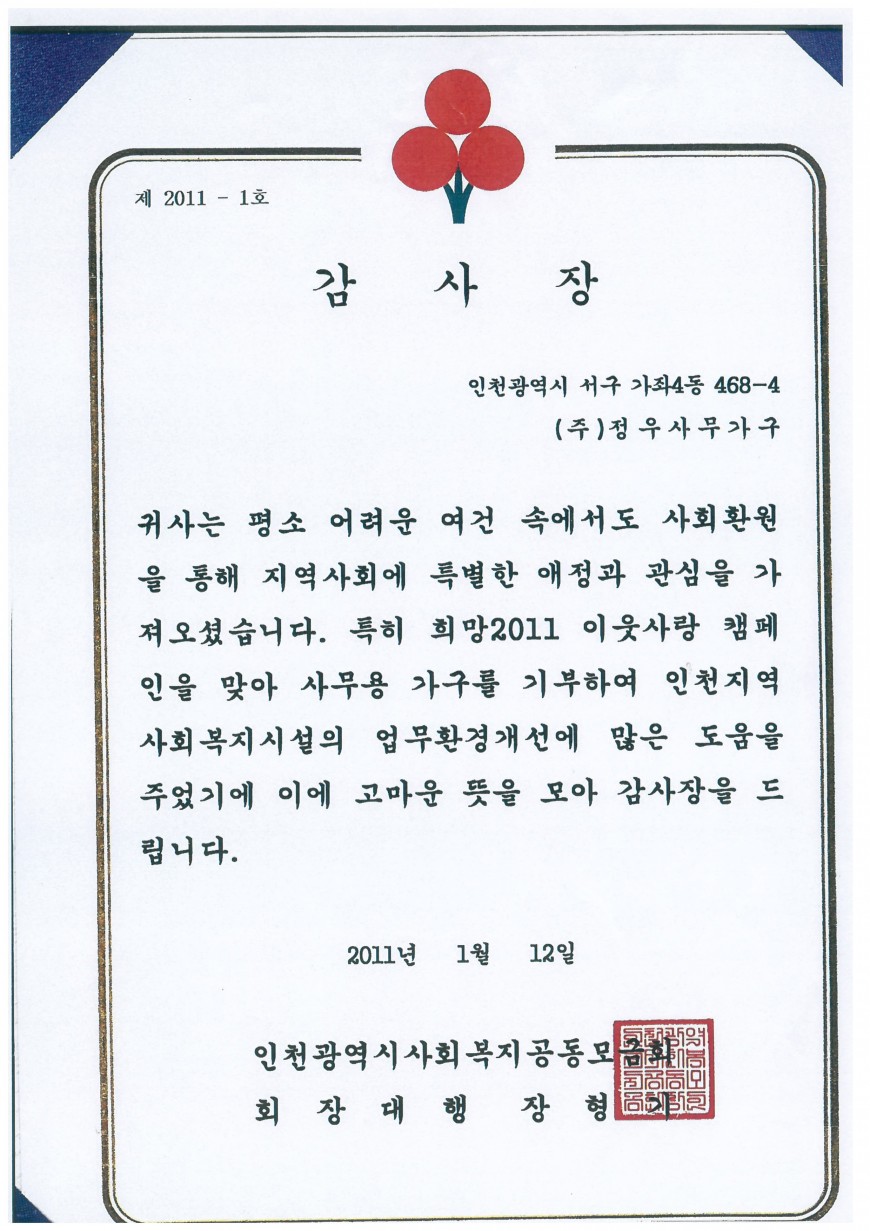 제 2011 - 1호
감 사 장
인천광역시 서구 가좌4동 468-4
(주)정우사무가구
귀사는 평소 어려운 여건 속에서도 사회환원
을 통해 지역사회에 특별한 애정과 관심을 가
져오셨습니다. 특히 희망2011 이웃사랑 캠페
인을 맞아 사무용 가구를 기부하여 인천지역
사회복지시설의 업무환경개선에 많은 도움을
주었기에 이에 고마운 뜻을 모아 감사장을 드
립니다.
2011년 1월 12일
인천광역시사회복지공동모금회
회 장 대 행 장 형 기